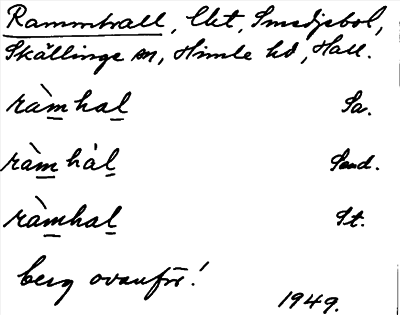 Rammhall, Ukt, Smedjebol,
Skällinge sn, Himle hd, Hall.
ràmhal Sa.
ràmhál Sand.
ràmhal St.
berg ovanför!
1949.